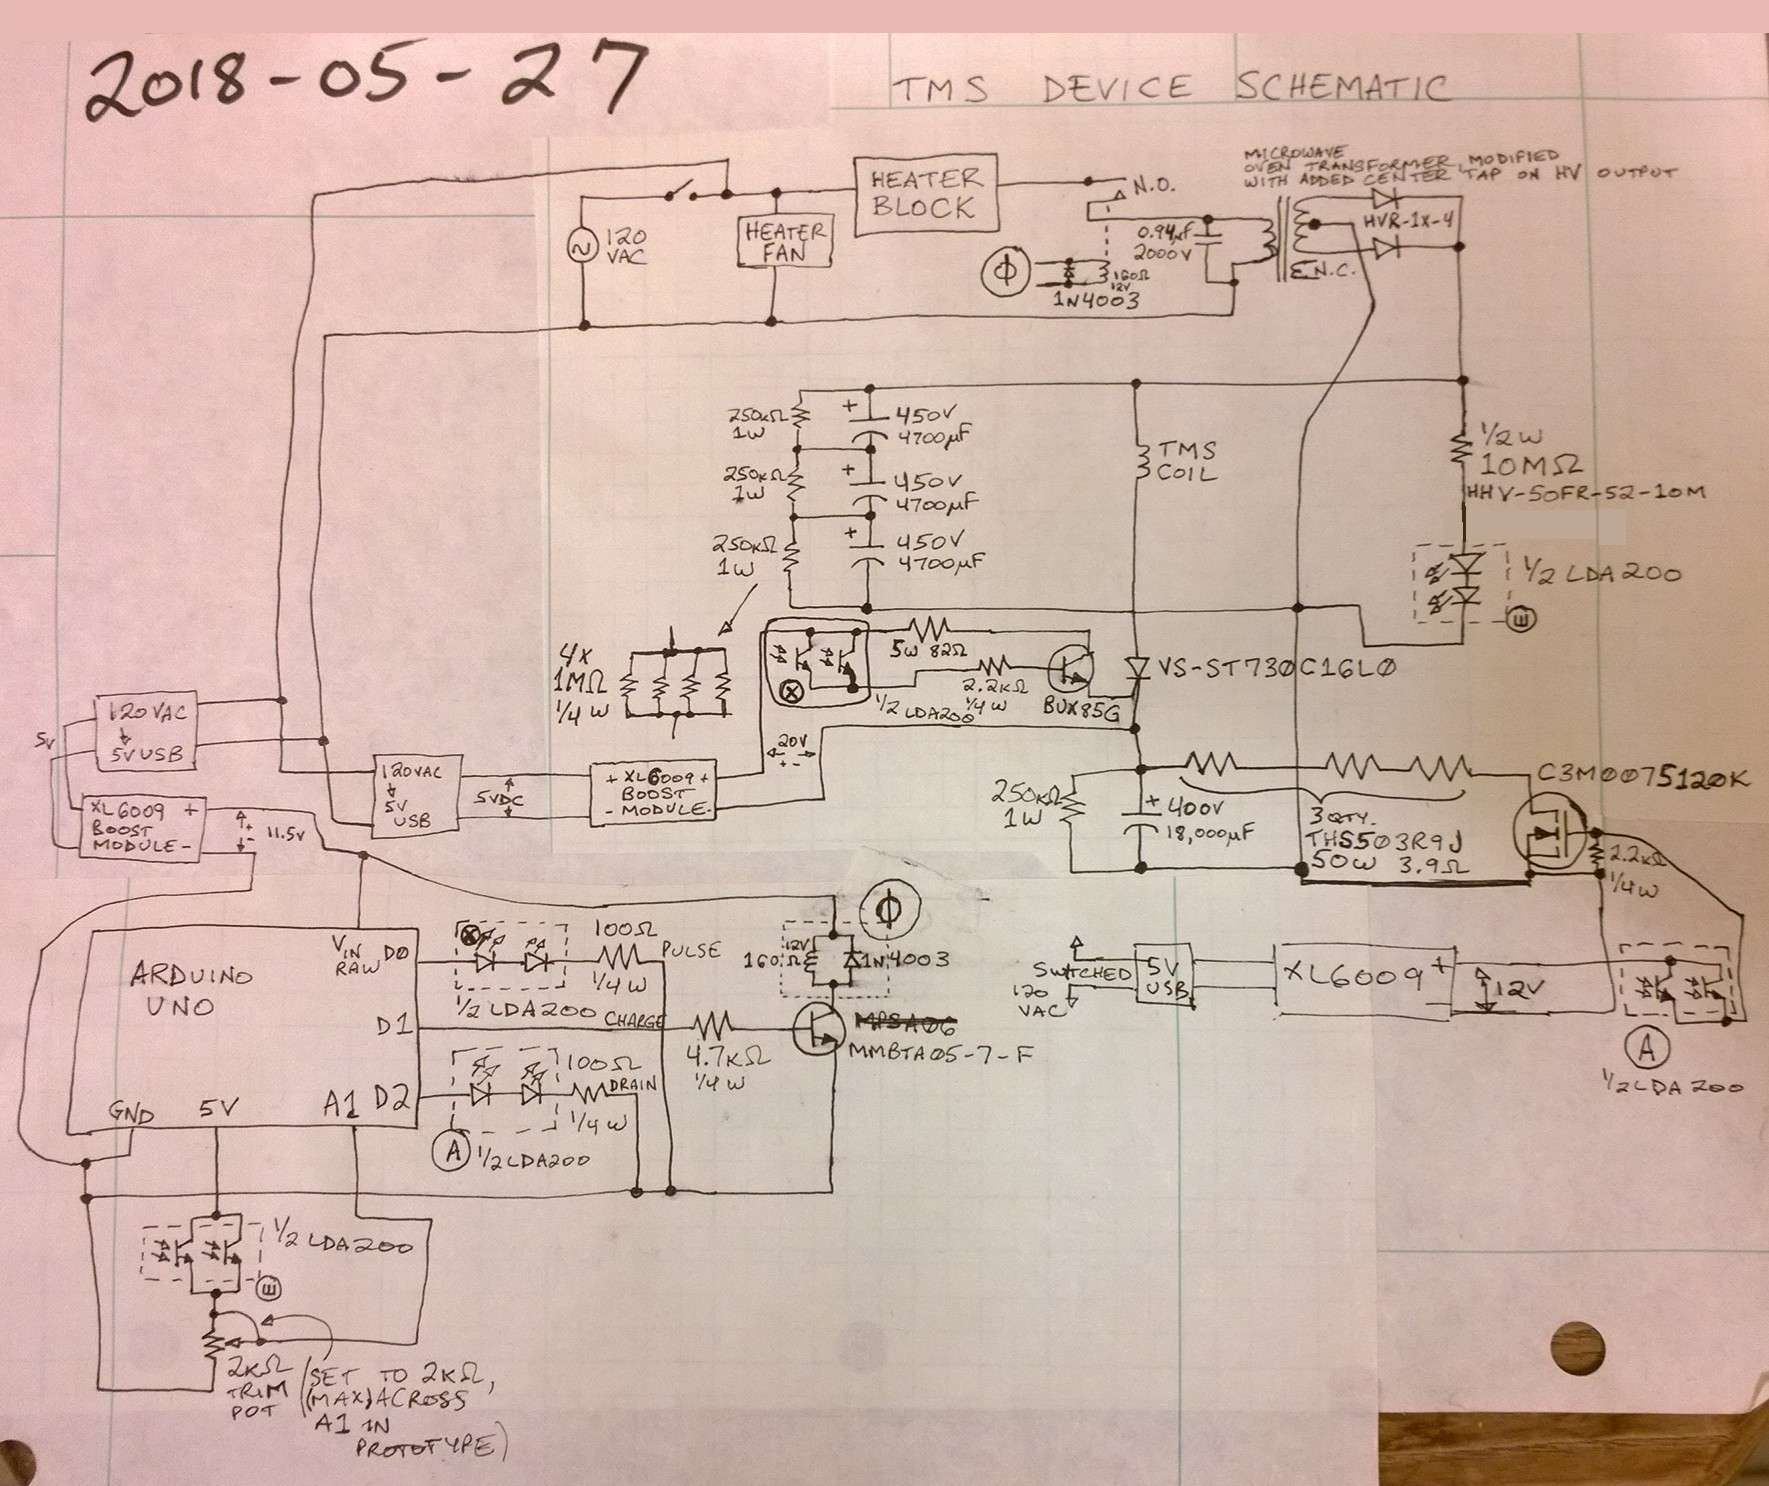 2018-05-27
TMS DEVICE SCHEMATIC
MICROWAVE
OVEN TRANSFORMER, MODIFIED
WITH ADDED CENTER TAP ON HV OUTPUT
HEATER
BLOCK
N.O.
HVR-1X-4
120
VAC
HEATER
FAN
0.94µF
2000V
N.C.
Φ
160Ω
12V
1N4003
250kΩ
1W
+
450V
4700µF
TMS
COIL
1/2W
10MΩ
HHV-50FR-52-10M
250kΩ
1W
+
450V
4700µF
250kΩ
1W
+
450V
4700µF
1/2 LDA200
4X
1MΩ
1/4 W
5W 82Ω
2.2kΩ
1/4W
1/2 LDA200
BUX85G
VS-ST730C16L0
120VAC
↓
5V USB
5V
20V
- +
120VAC
↓
5V
USB
5VDC
+ XL6009 +
BOOST
- MODULE -
C3M0075120K
250kΩ
1W
+
400V
18,000µF
3 QTY.
THS503R9J
50W 3.9Ω
2.2kΩ
1/4W
XL6009 +
BOOST
MODULE -
+
-
11.5V
Φ
ARDUINO
UNO
VIN
RAW
D0
100Ω
1/4W
PULSE
1/2 LDA200
12V
160Ω
1N4003
D1
CHARGE
4.7KΩ
1/4W
MPSA06
MMBTA05-7-F
SWITCHED
120
VAC
5V
USB
XL6009 +
-
12V
A
1/2 LDA200
GND
5V
A1
D2
100Ω
DRAIN
1/4W
A
1/2 LDA200
1/2 LDA200
2KΩ
TRIM
POT
(SET TO 2KΩ,
(MAX) ACROSS
A1 IN
PROTOTYPE)